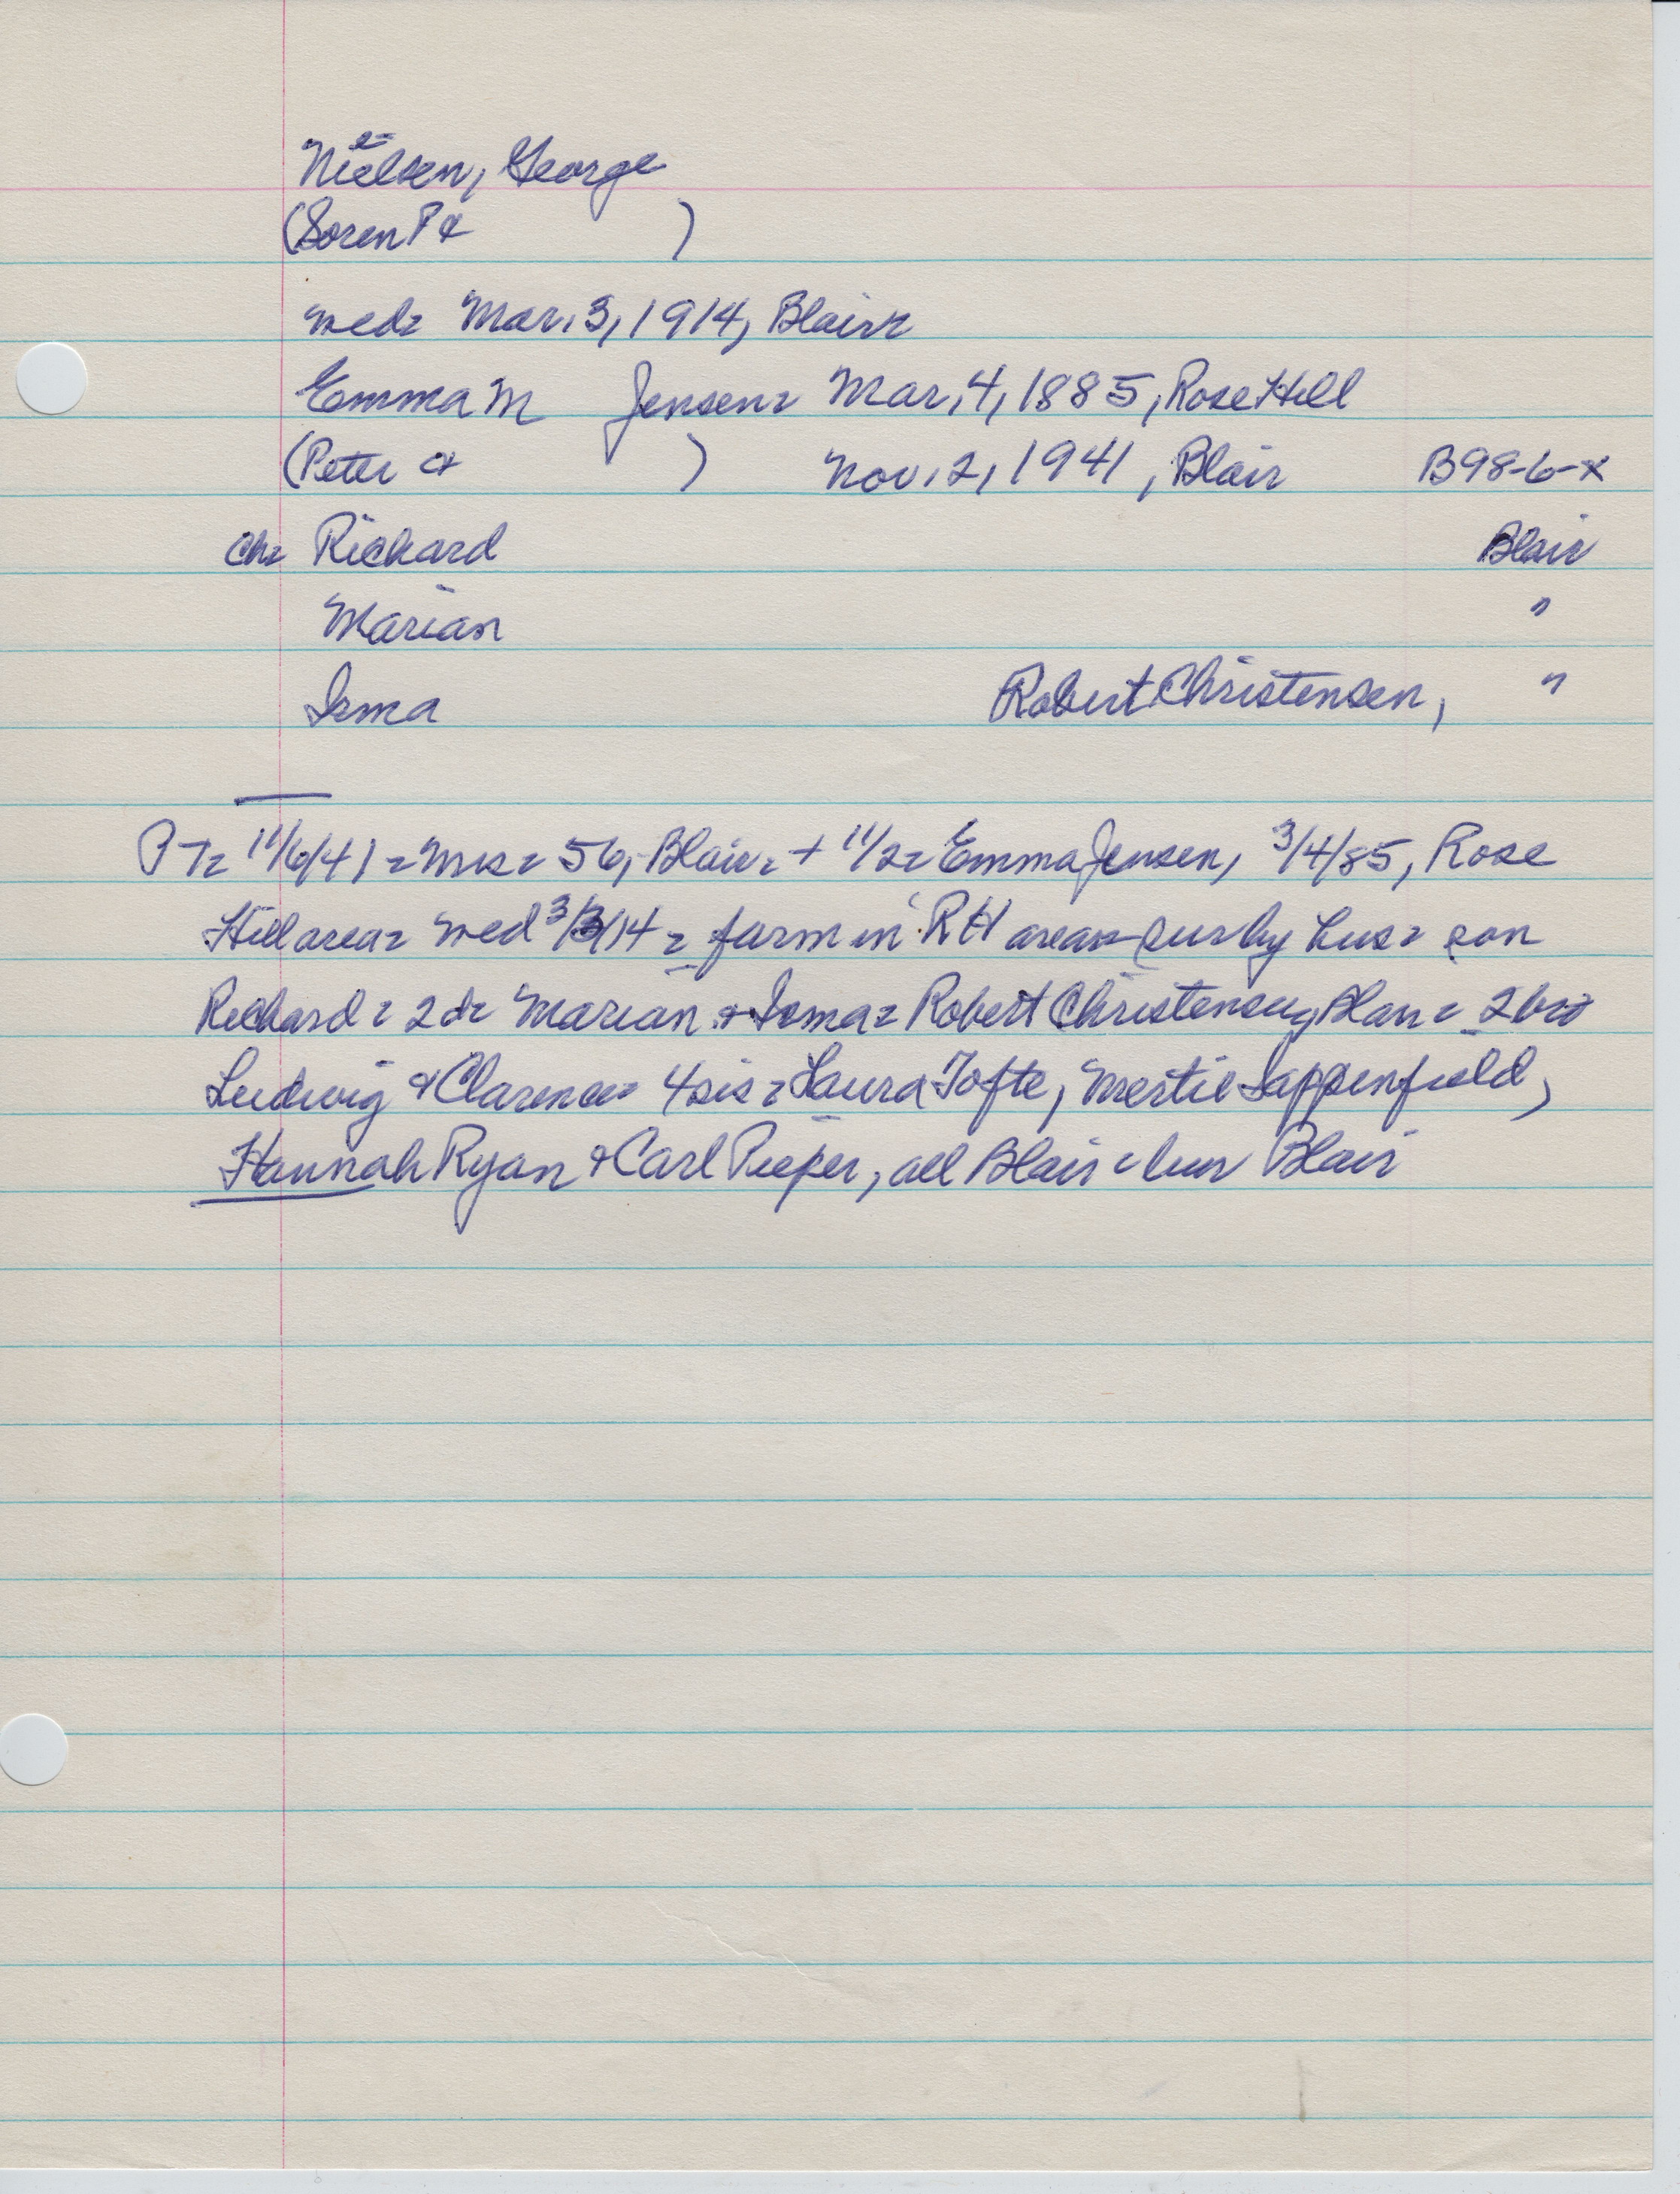 Nielsen, George
(Soren P & )
wed= Mar. 3, 1914, Blair=
Emma M Jensen= Mar. 4, 1885, Rose Hill
(Peter & ) Nov. 2, 1941, Blair B98-6-x
Ch= Richard Blair
Marian "
Irma Robert Christensen, "
PT= 11/6/41 = Mrs = 56, Blair = + 11/2 = Emma Jensen, 3/4/85, Rose
Hill area = wed 3/3/14 = farm in RH area = sur by hus = son
Richard = 2 d= Marian & Irma = Robert Christensen, Blair = 2 bro
Ludwig & Clarence = 4 sis = Laura Tofte, Mertie Sappenfield,
Hannah Ryan & Carl Pieper, all Blair = bur Blair